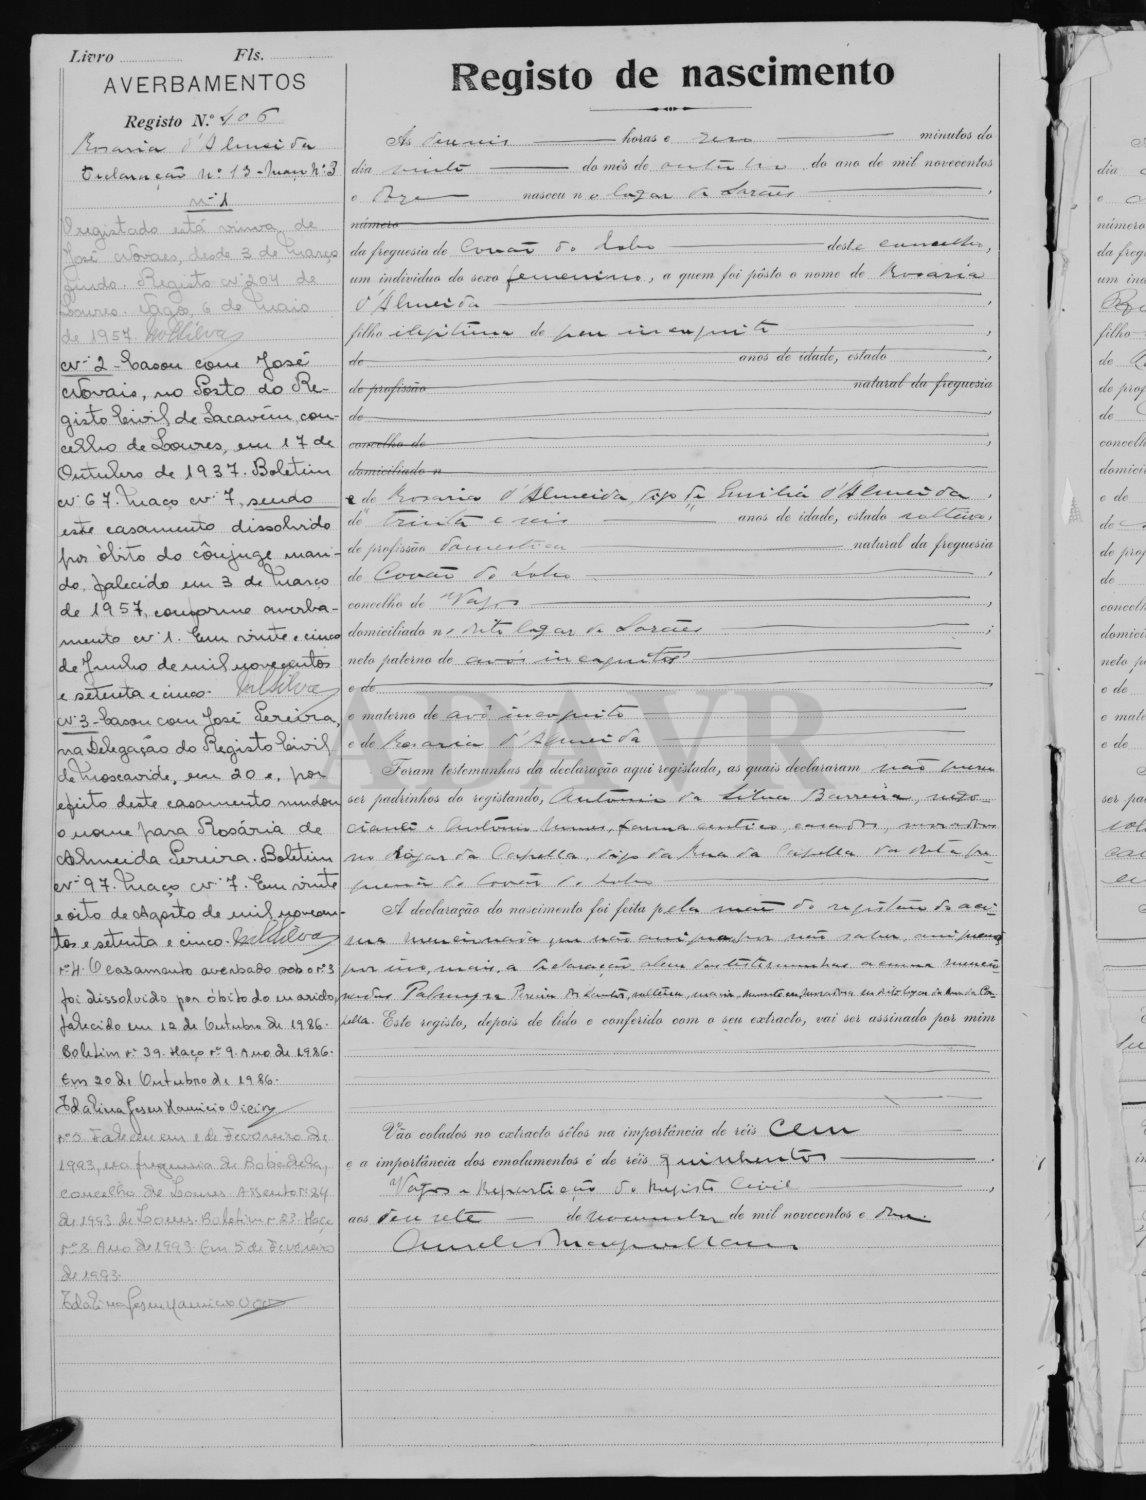 Livro Fls.
AVERBAMENTOS
Registo N.º 406
Rosaria d'Almeida
Declaração nº 13 - Maço Nº 3
nº 1
O registado está viuva de
José Novaes, desde 3 de Março
findo. Registo nº 204 de
Loures. Vagos, 6 de Maio
de 1957.
nº 2 - Casou com José
Novais, no Posto do Re-
gisto Civil de Sacavém, con-
celho de Loures, em 17 de
Outubro de 1937. Boletim
nº 67. Maço nº 7, sendo
este casamento dissolvido
por óbito do cônjuge mari-
do, falecido em 3 de Março
de 1957, conforme averba-
mento nº 1. Em vinte e cinco
de Junho de mil novecentos
e setenta e cinco.
nº 3 - Casou com José Pereira,
na Delegação do Registo Civil
de Moscavide, em 20 e, por
efeito deste casamento mudou
o nome para Rosária de
Almeida Pereira. Boletim
nº 97. Maço nº 7. Em vinte
e oito de Agosto de mil novecen-
tos e setenta e cinco.
nº 4. O casamento averbado sob o nº 3
foi dissolvido por óbito do marido,
falecido em 12 de Outubro de 1986.
Boletim nº 39. Maço nº 9. Ano de 1986.
Em 20 de Outubro de 1986.
Idalina Jesus Mauricio Vieira
nº 5. Faleceu em 1 de Fevereiro de
1993, na freguesia de Bobadela,
concelho de Loures. Assento nº 84
de 1993 de Loures. Boletim nº 23. Maço
nº 3. Ano de 1993. Em 5 de Fevereiro
de 1993.
Idalina Jesus Mauricio
Registo de nascimento
Ás horas e zero minutos do
dia vinte do mês de outubro do ano de mil novecentos
e doze nasceu no lugar de
número
da freguesia de Covão do Lobo deste concelho,
um individuo do sexo femenino, a quem foi pôsto o nome de Rosaria
d'Almeida
filho ilegitima de pae incognito
de anos de idade, estado
de profissão natural da freguesia
de
concelho de
domiciliado n
e de Rosaria d'Almeida, digo de Emilia d'Almeida
de trinta e seis anos de idade, estado solteira,
de profissão domestica natural da freguesia
de Covão do Lobo
concelho de Vagos
domiciliado no dito lugar de
neto paterno de avós incognitos
e de
e materno de avô incognito
e de Rosaria d'Almeida
Foram testemunhas da declaração aqui registada, as quais declararam não querer
ser padrinhos do registando, Antonio da Silva Barreira, nego-
ciante e Antonio Nunes, farmaceutico, casados, moradores
no lugar da Capella, digo da Rua da Capella da dita fre-
guesia de Covão do Lobo
A declaração do nascimento foi feita pela mãe do registando aci-
ma mencionada, que não assigna por não saber, assignando
por isso, mais, a declaração, alem das testemunhas acima mencio-
nadas Palmyra Pereira dos Santos, solteira, maior,
pella. Este registo, depois de lido e conferido com o seu extracto, vai ser assinado por mim
Vão colados no extracto sêlos na importância de réis Cem
e a importância dos emolumentos é de réis quinhentos
Vagos e Repartição do Registo Civil
aos dezesete de novembro de mil novecentos e doze.
ADAVR